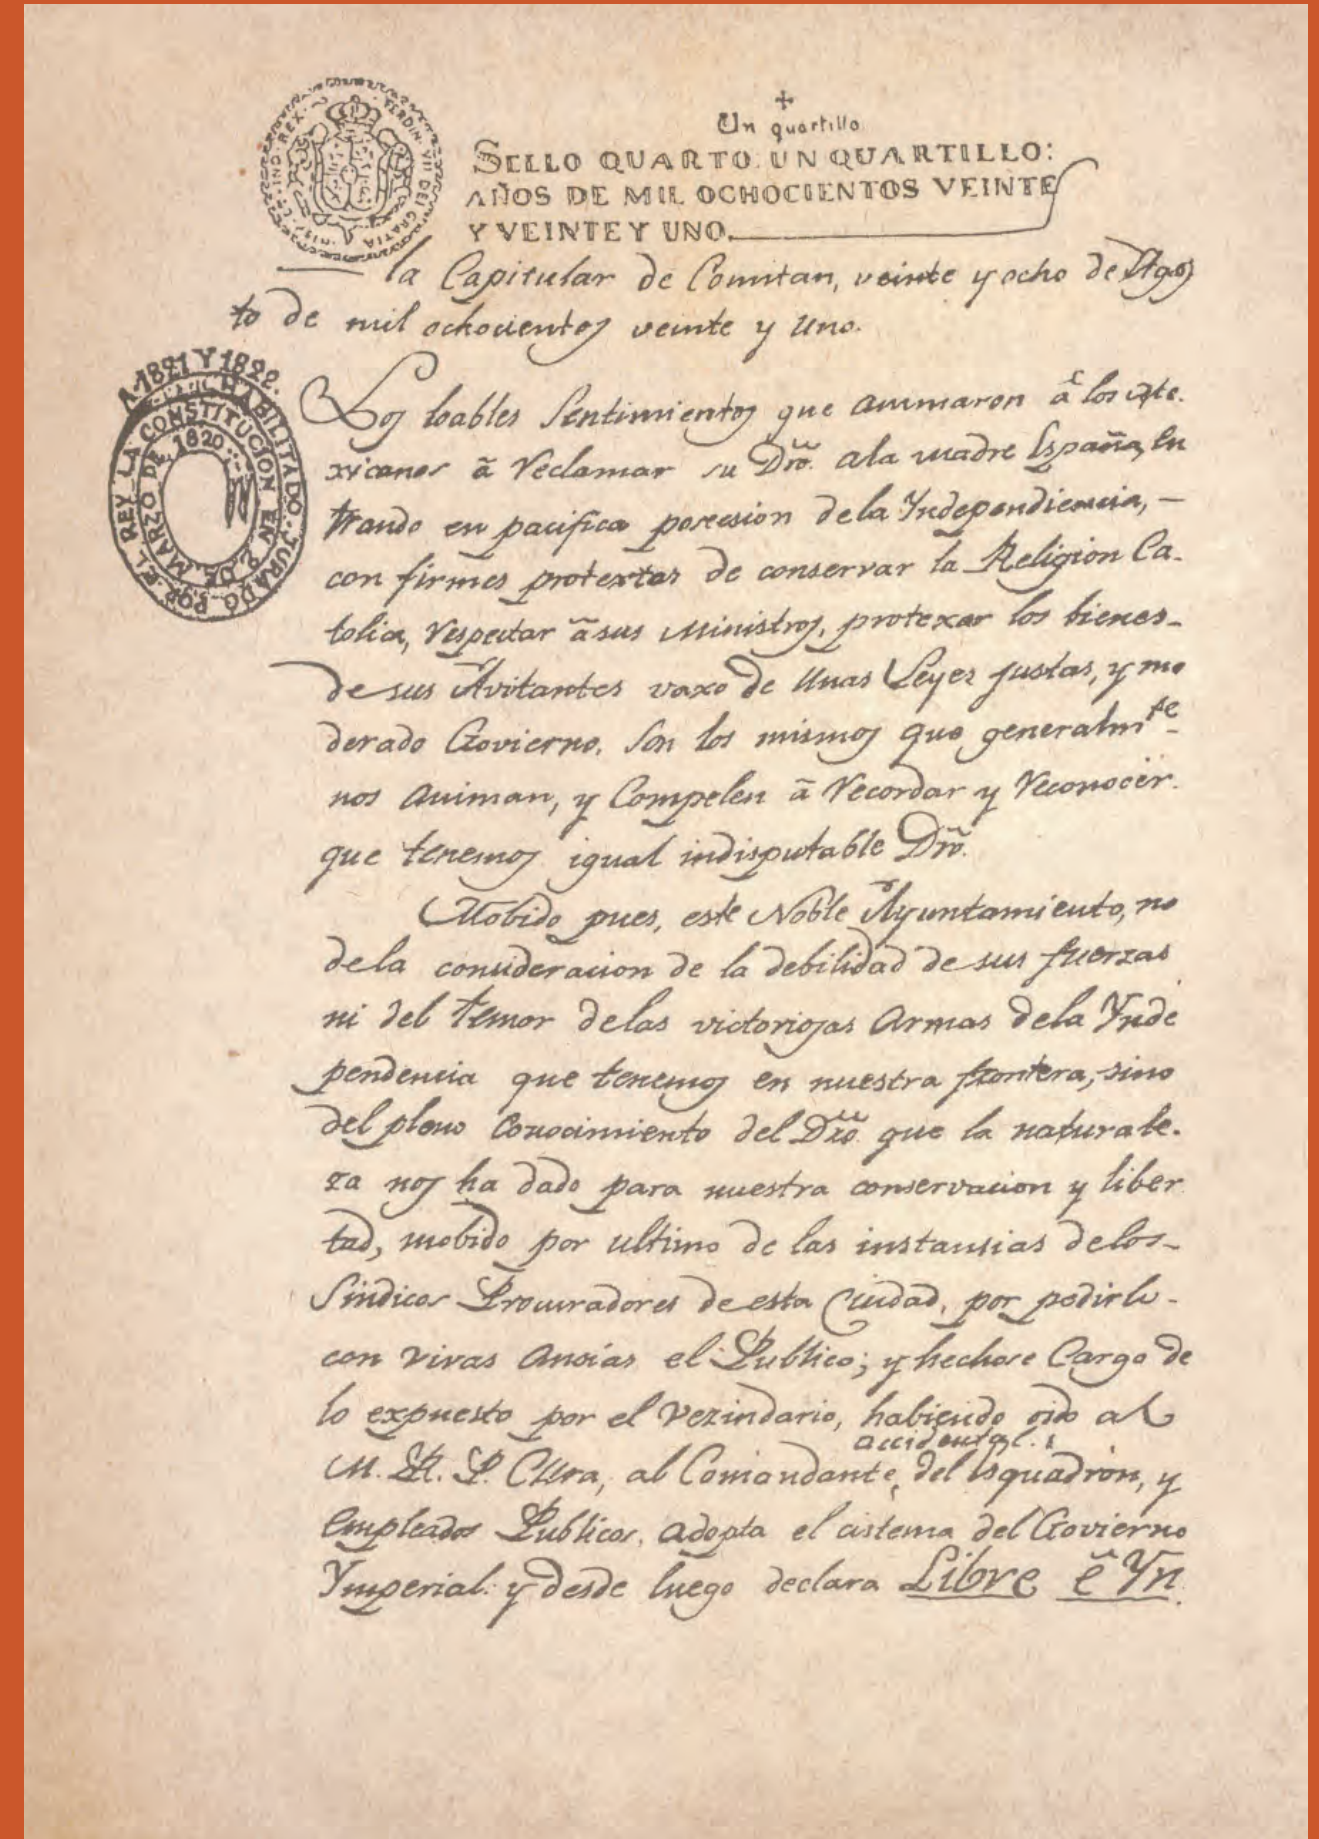 FERDIN. VII DEI GRATIA HISP. ET IND. REX.
Un quartillo
SELLO QUARTO: UN QUARTILLO:
AÑOS DE MIL OCHOCIENTOS VEINTE
Y VEINTE Y UNO.
la Capitular de Comitan, veinte y ocho de Agos
to de mil ochocientos veinte y Uno.
A. 1821 Y 1822.
HABILITADO. JURADO POR EL REY LA CONSTITUCION EN 9 DE MARZO DE 1820
Los loables Sentimientos que animaron â los Me.
xicanos â Reclamar su Dro. ala madre España, en
trando en pacifica posesion dela Yndependiencia, —
con firmes protextas de conservar la Religion Ca-
tolica, respectar â sus Ministros, protexar los bienes-
de sus Avitantes vaxo de Unas Leyes justas, y mo
derado Govierno, son los mismos que generalmte-
nos animan, y Compelen â recordar y reconocer.
que tenemos igual indisputable Dro.
Mobido pues, este Noble Ayuntamiento, no
dela consideracion de la debilidad de sus fuerzas
ni del temor delas victoriosas Armas dela Ynde
pendencia que tenemos en nuestra frontera, sino
del pleno Conocimiento del Dro. que la naturale.
za nos ha dado para nuestra conservacion y liber
tad, mobido por ultimo de las instansias delos-
Sindicos Procuradores de esta Ciudad, por pedirlo-
con vivas Ansias el Publico; y hechose Cargo de
lo expuesto por el Vezindario, habiendo oido al
accidental.
M. R. P. Cura, al Comandante, del Esquadron, y
Empleados Publicos, adopta el cistema del Govierno
Ymperial: y desde luego declara Libre ê Yn.